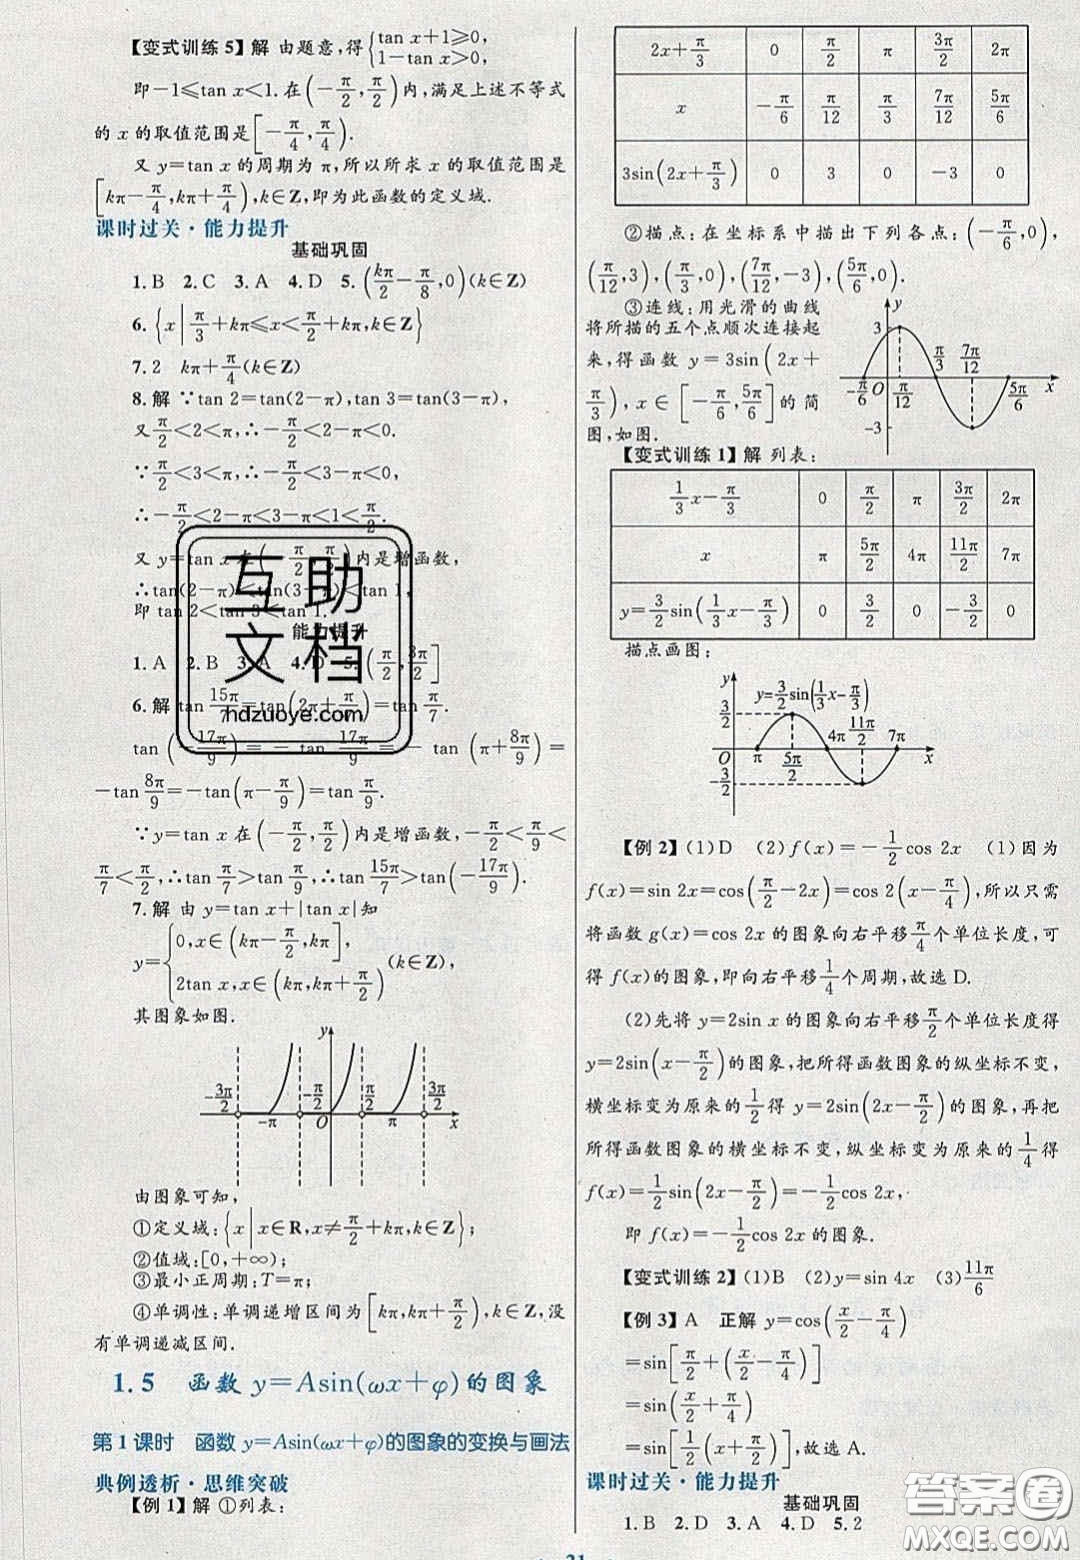 【变式训练5】解 由题意,得{tan x+1≥0, 1-tan x>0,
即-1≤tan x<1.在(-π/2,π/2)内,满足上述不等式
的x的取值范围是[-π/4,π/4).
又y=tan x的周期为π,所以所求x的取值范围是
[kπ-π/4,kπ+π/4),k∈Z,即为此函数的定义域.
课时过关·能力提升
基础巩固
1.B 2.C 3.A 4.D 5.(kπ/2-π/8,0)(k∈Z)
6.{x|π/3+kπ≤x<π/2+kπ,k∈Z}
7.2 kπ+π/4(k∈Z)
8.解 ∵tan 2=tan(2-π),tan 3=tan(3-π),
又π/2<2<π,∴-π/2<2-π<0.
∵π/2<3<π,∴-π/2<3-π<0.
∴-π/2<2-π<3-π<1<π/2.
又y=tan x在(-π/2,π/2)内是增函数,
∴tan(2-π)<tan(3-π)<tan 1,
即tan 2<tan 3<tan 1.
能力提升
1.A 2.B 3.A 4.D 5.(π/2,3π/2]
6.解 tan 15π/7=tan(2π+π/7)=tan π/7.
tan(-17π/9)=-tan 17π/9=-tan(π+8π/9)=
-tan 8π/9=-tan(π-π/9)=tan π/9.
∵y=tan x在(-π/2,π/2)内是增函数,-π/2<π/9<
π/7<π/2,∴tan π/7>tan π/9,∴tan 15π/7>tan(-17π/9).
7.解 由y=tan x+|tan x|知
y={0,x∈(kπ-π/2,kπ], 2tan x,x∈(kπ,kπ+π/2) (k∈Z),
其图象如图.
y
-3π/2 -π -π/2 O π/2 π 3π/2 x
由图象可知,
①定义域:{x|x∈R,x≠π/2+kπ,k∈Z};
②值域:[0,+∞);
③最小正周期:T=π;
④单调性:单调递增区间为[kπ,kπ+π/2),k∈Z,没
有单调递减区间.
1.5 函数y=Asin(ωx+φ)的图象
第1课时 函数y=Asin(ωx+φ)的图象的变换与画法
典例透析·思维突破
【例1】解 ①列表:
2x+π/3 0 π/2 π 3π/2 2π
x -π/6 π/12 π/3 7π/12 5π/6
3sin(2x+π/3) 0 3 0 -3 0
②描点:在坐标系中描出下列各点:(-π/6,0),
(π/12,3),(π/3,0),(7π/12,-3),(5π/6,0).
③连线:用光滑的曲线
将所描的五个点顺次连接起
来,得函数y=3sin(2x+
π/3),x∈[-π/6,5π/6]的简
图,如图.
y
3
π/3 7π/12
-π/6 O π/12 5π/6 x
-3
【变式训练1】解 列表:
1/3x-π/3 0 π/2 π 3π/2 2π
x π 5π/2 4π 11π/2 7π
y=3/2sin(1/3x-π/3) 0 3/2 0 -3/2 0
描点画图:
y y=3/2sin(1/3x-π/3)
3/2
11π/2
O π 5π/2 4π 7π x
-3/2
【例2】(1)D (2)f(x)=-1/2cos 2x (1)因为
f(x)=sin 2x=cos(π/2-2x)=cos 2(x-π/4),所以只需
将函数g(x)=cos 2x的图象向右平移π/4个单位长度,可
得f(x)的图象,即向右平移1/4个周期,故选D.
(2)先将y=2sin x的图象向右平移π/2个单位长度得
y=2sin(x-π/2)的图象,把所得函数图象的纵坐标不变,
横坐标变为原来的1/2得y=2sin(2x-π/2)的图象,再把
所得函数图象的横坐标不变,纵坐标变为原来的1/4得
f(x)=1/2sin(2x-π/2)=-1/2cos 2x,
即f(x)=-1/2cos 2x的图象.
【变式训练2】(1)B (2)y=sin 4x (3)11π/6
【例3】A 正解 y=cos(x/2-π/4)
=sin[π/2+(x/2-π/4)]
=sin(x/2+π/4)
=sin[1/2(x+π/2)],故选A.
课时过关·能力提升
基础巩固
1.B 2.D 3.A 4.D 5.2
21
互助
文档
hdzuoye.com
答案圈
MXQE.COM